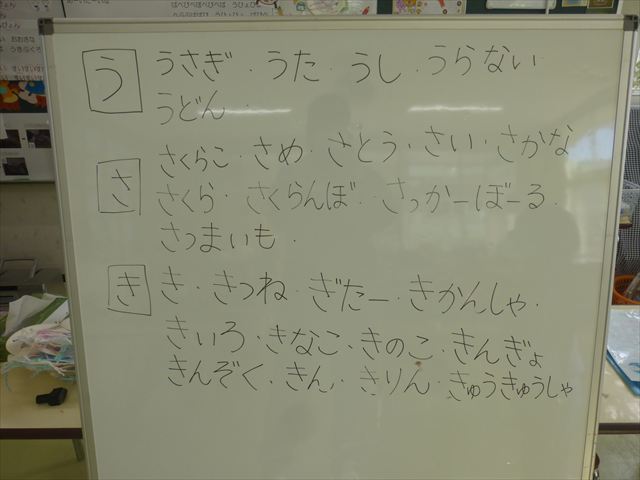 う うさぎ・うた・うし・うらない
うどん・
さくらこ・さめ・さとう・さい・さかな
さ さくら・さくらんぼ・さっかーぼーる
さつまいも・
き き・きつね・ぎたー・きかんしゃ・
きいろ・きなこ・きのこ・きんぎょ
きんぞく・きん・きりん・きゅうきゅうしゃ